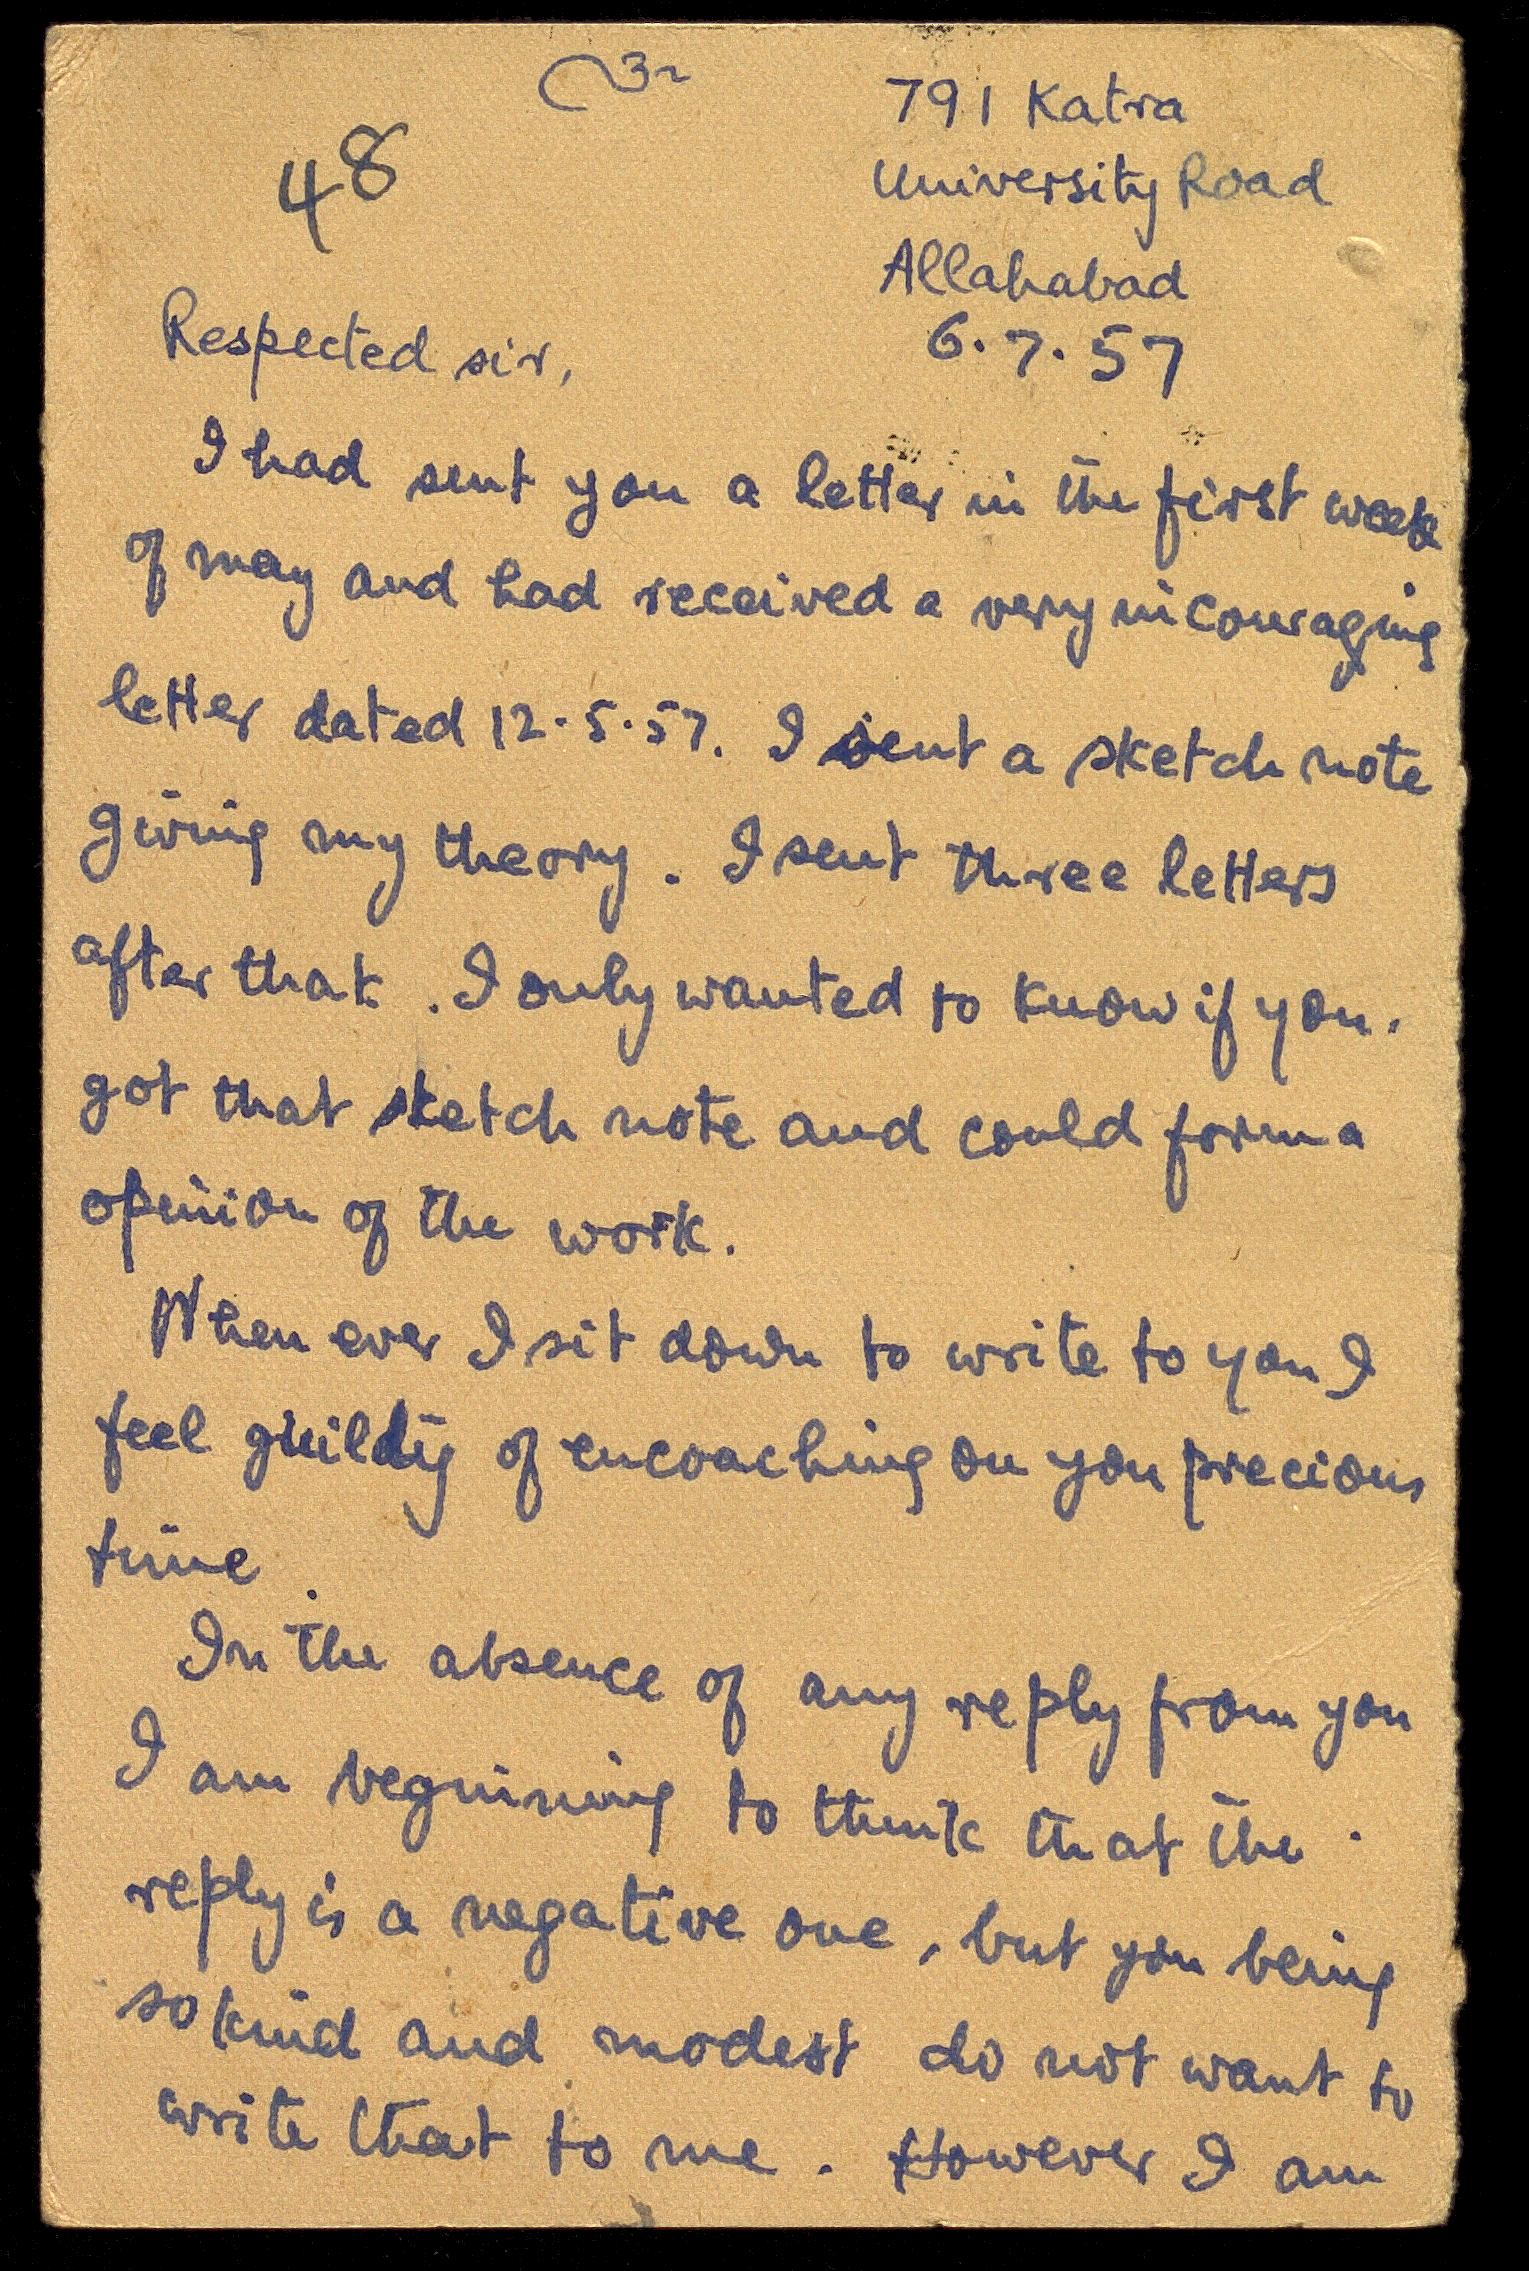 48
791 Katra
University Road
Allahabad
6.7.57
Respected sir,
I had sent you a letter in the first week
of may and had received a very incouraging
letter dated 12.5.57. I sent a sketch note
giving my theory. I sent three letters
after that. I only wanted to know if you.
got that sketch note and could form a
opinion of the work.
When ever I sit down to write to you I
feel guildty of encoaching on you precious
time.
In the absence of any reply from you
I am beginning to think that the
reply is a negative one, but you being
so kind and modest do not want to
write that to me. However I am